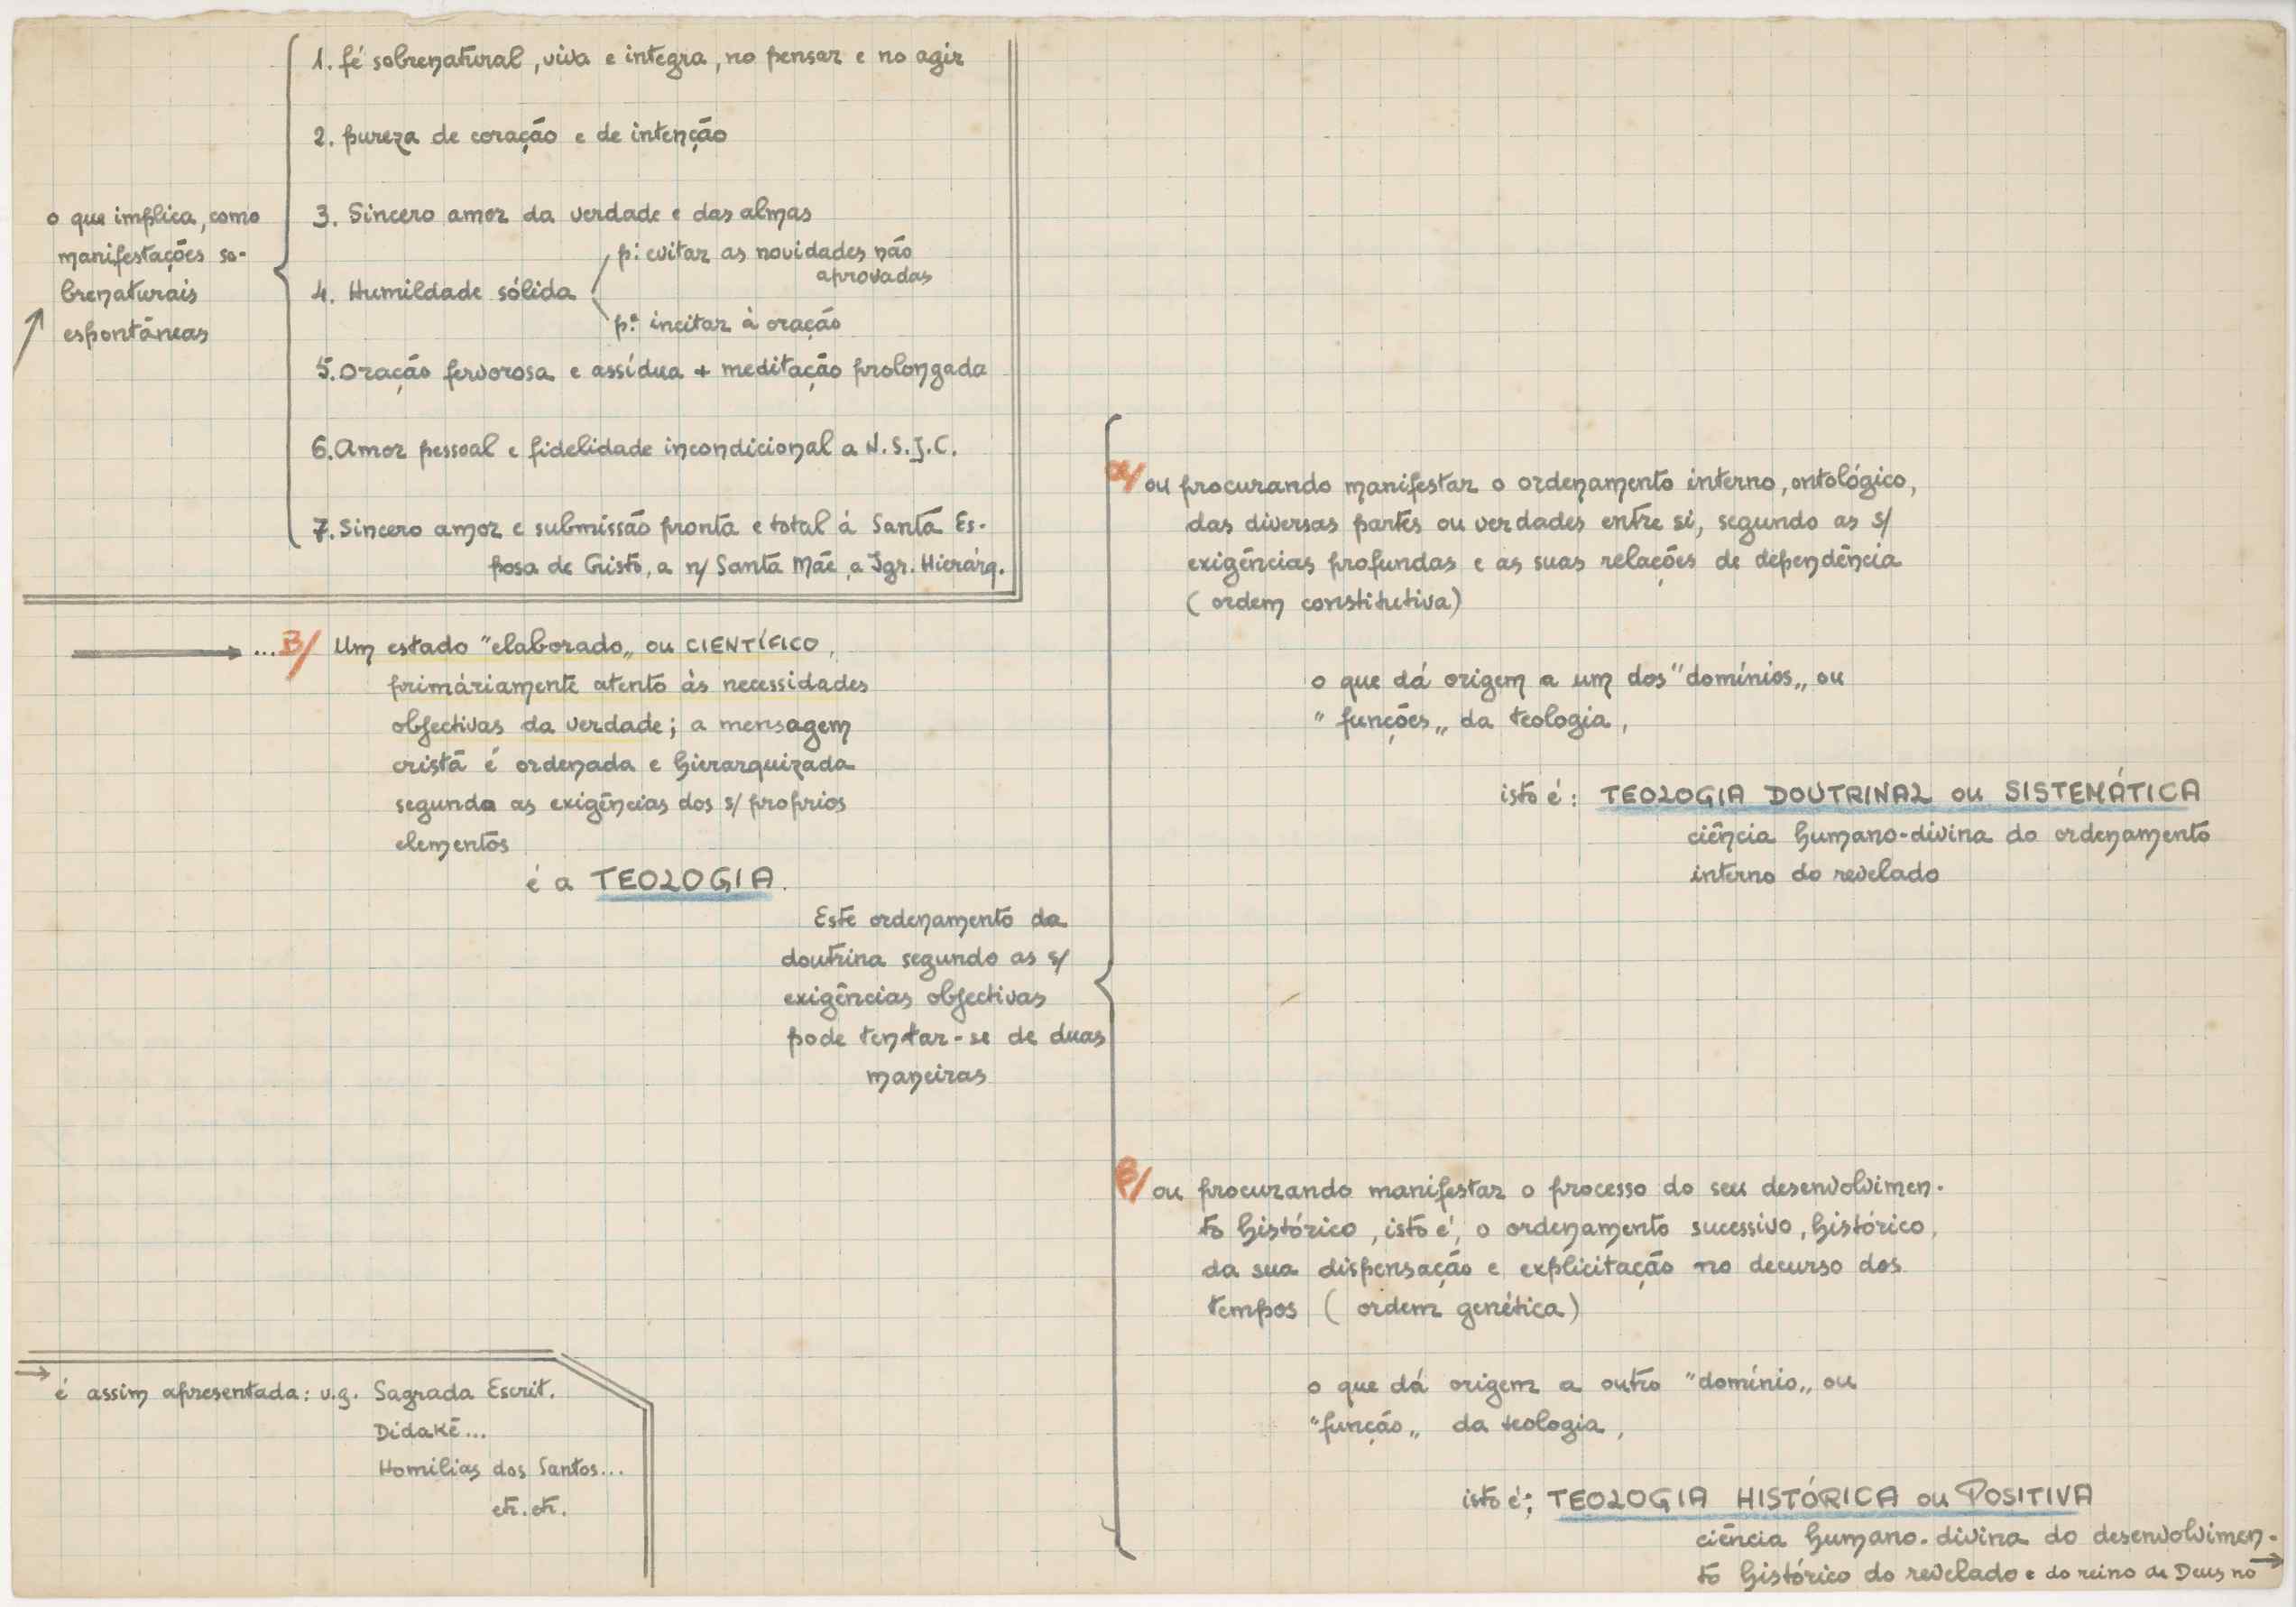 o que implica, como
manifestações so-
brenaturais
espontâneas
1. fé sobrenatural, viva e integra, no pensar e no agir
2. pureza de coração e de intenção
3. Sincero amor da verdade e das almas
4. Humildade sólida
pª: evitar as novidades não
aprovadas
pª: incitar à oração
5. Oração fervorosa e assídua + meditação prolongada
6. Amor pessoal e fidelidade incondicional a N.S.J.C.
7. Sincero amor e submissão pronta e total á Santa Es-
posa de Cristo, a n/ Santa Mãe, a Igr. Hierárq.
→ ...B/ Um estado "elaborado„ ou CIENTÍFICO,
primáriamente atento às necessidades
objectivas da verdade; a mensagem
cristã é ordenada e hierarquizada
segundo as exigências dos s/ proprios
elementos
é a TEOLOGIA.
Este ordenamento da
doutrina segundo as s/
exigências objectivas
pode tentar-se de duas
maneiras
α/ ou procurando manifestar o ordenamento interno, ontológico,
das diversas partes ou verdades entre si, segundo as s/
exigências profundas e as suas relações de dependência
( ordem constitutiva)
o que dá origem a um dos "domínios„ ou
"funções„ da teologia,
isto é: TEOLOGIA DOUTRINAL ou SISTEMÁTICA
ciência humano-divina do ordenamento
interno do revelado
β/ ou procurando manifestar o processo do seu desenvolvimen-
to histórico, isto é, o ordenamento sucessivo, histórico,
da sua dispensação e explicitação no decurso dos
tempos ( ordem genética)
o que dá origem a outro "domínio„ ou
"função„ da teologia,
isto é; TEOLOGIA HISTÓRICA ou POSITIVA
ciência humano-divina do desenvolvimen-
to histórico do revelado e do reino de Deus no →
→ é assim apresentada: v.g. Sagrada Escrit.
Didakê...
Homilias dos Santos...
etc. etc.